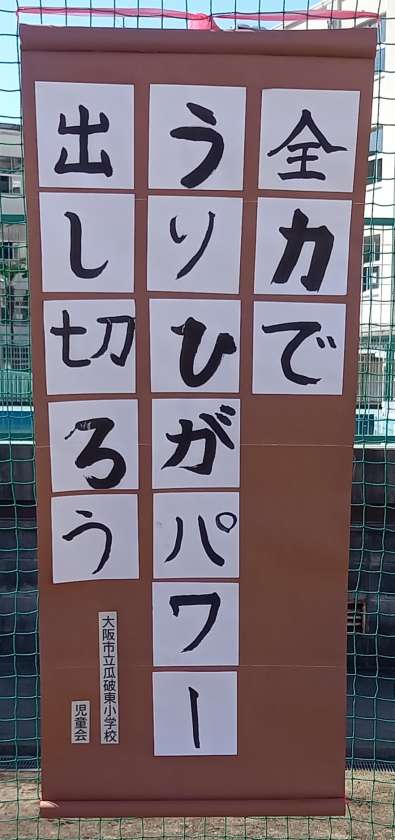 全力で
うりひがパワー
出し切ろう
大阪市立瓜破東小学校
児童会